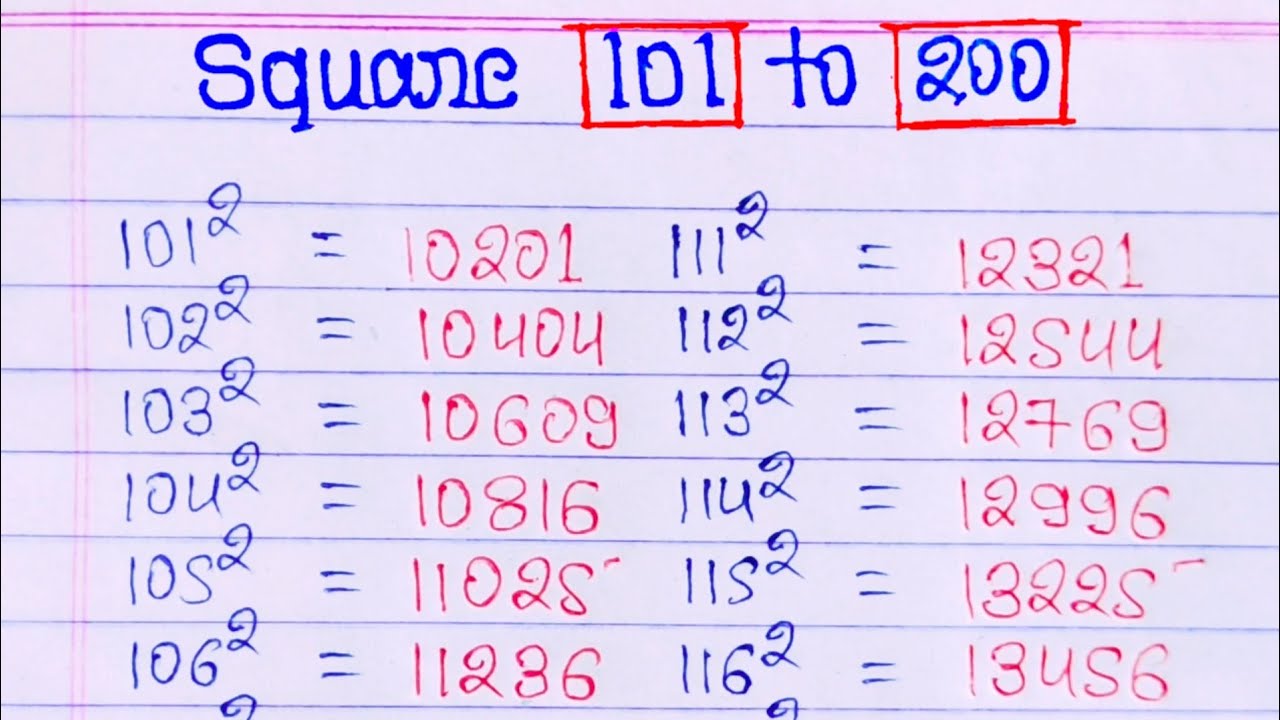 Square 101 to 200
101² = 10201 111² = 12321
102² = 10404 112² = 12544
103² = 10609 113² = 12769
104² = 10816 114² = 12996
105² = 11025 115² = 13225
106² = 11236 116² = 13456